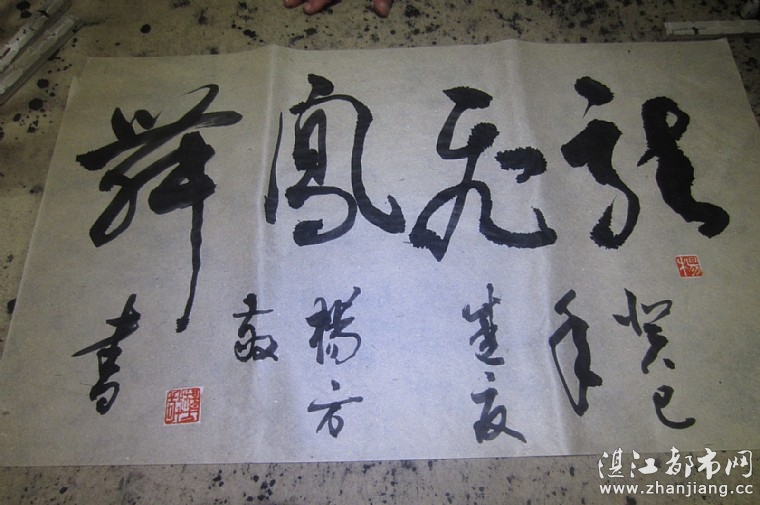 龍飛鳳舞
癸巳
年
盛夏
楊方
敬
書
湛江都市网
www.zhanjiang.cc